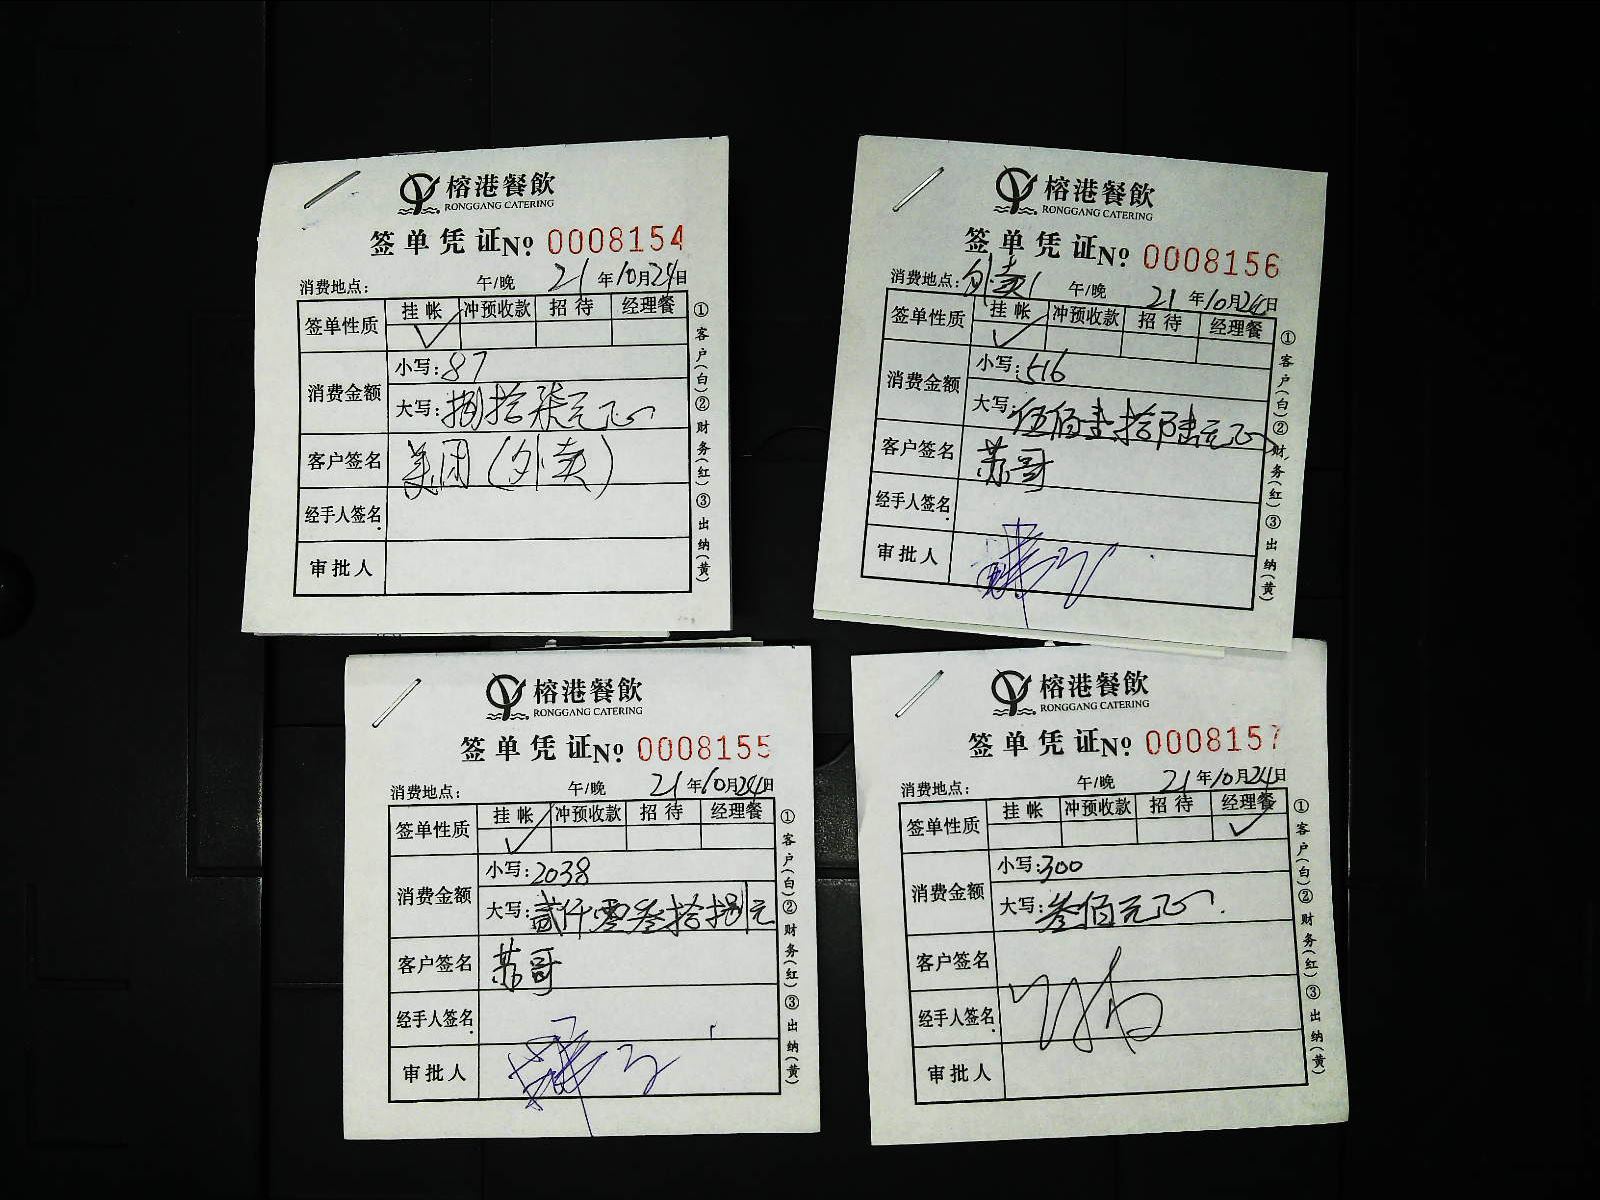 榕港餐飲
RONGGANG CATERING
签单凭证 No 0008154
消费地点： 午/晚 21年10月24日
签单性质 挂帐 冲预收款 招待 经理餐
✓
消费金额 小写：87
大写：捌拾柒元正
客户签名 美团（外卖）
经手人签名
审批人
①客户（白）②财务（红）③出纳（黄）
榕港餐飲
RONGGANG CATERING
签单凭证 No 0008156
消费地点：外卖 午/晚 21年10月24日
签单性质 挂帐 冲预收款 招待 经理餐
✓
消费金额 小写：516
大写：伍佰壹拾陆元正
客户签名 苏哥
经手人签名
审批人
①客户（白）②财务（红）③出纳（黄）
榕港餐飲
RONGGANG CATERING
签单凭证 No 0008155
消费地点： 午/晚 21年10月24日
签单性质 挂帐 冲预收款 招待 经理餐
✓
消费金额 小写：2038
大写：贰仟零叁拾捌元
客户签名 苏哥
经手人签名
审批人
①客户（白）②财务（红）③出纳（黄）
榕港餐飲
RONGGANG CATERING
签单凭证 No 0008157
消费地点： 午/晚 21年10月24日
签单性质 挂帐 冲预收款 招待 经理餐
✓
消费金额 小写：300
大写：叁佰元正
客户签名
经手人签名
审批人
①客户（白）②财务（红）③出纳（黄）